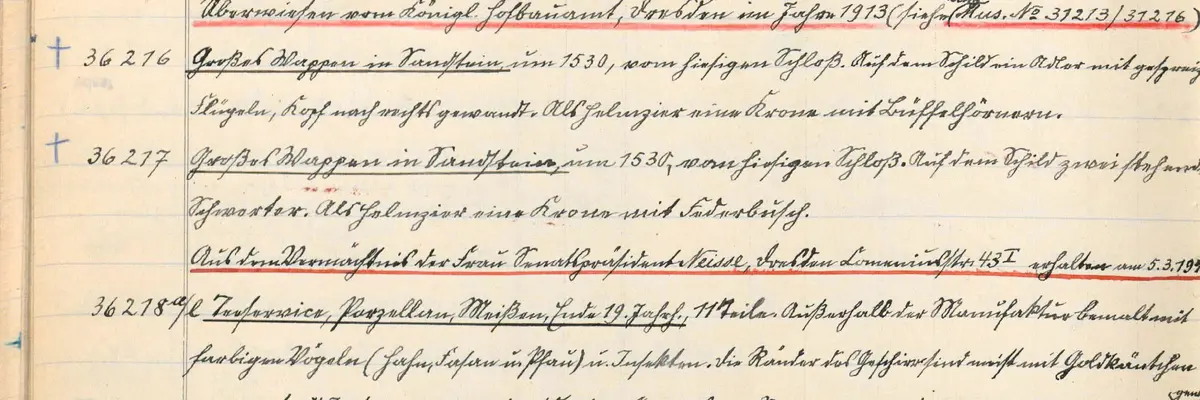 Überwiesen vom Königl. Hofbauamt, Dresden im Jahre 1913 (siehe Mus. No 31213/31216)
† 36216 Großes Wappen in Sandstein, um 1530, vom hiesigen Schloß. Auf dem Schild ein Adler mit gespreiz
Flügeln, Kopf nach rechts gewandt. Als Helmzier eine Krone mit Büffelhörnern.
† 36217 Großes Wappen in Sandstein, um 1530, vom hiesigen Schloß. Auf dem Schild zwei stehend
Schwerter. Als Helmzier eine Krone mit Federbusch.
Aus dem Vermächtnis der Frau Senatspräsident Neisse, Dresden Comeniusstr. 43 I erhalten am 5.3.19
36218 a/l Teeservice, Porzellan, Meißen, Ende 19. Jahrh., 11 Teile. Außerhalb der Manufaktur bemalt mit
farbigen Vögeln (Hahn, Fasan u. Pfau) u. Insekten. Die Ränder des Geschirrs sind meist mit Goldkäntchen